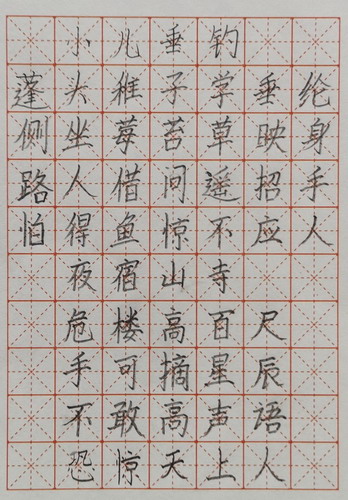 小儿垂钓
蓬头稚子学垂纶
侧坐莓苔草映身
路人借问遥招手
怕得鱼惊不应人
夜宿山寺
危楼高百尺
手可摘星辰
不敢高声语
恐惊天上人